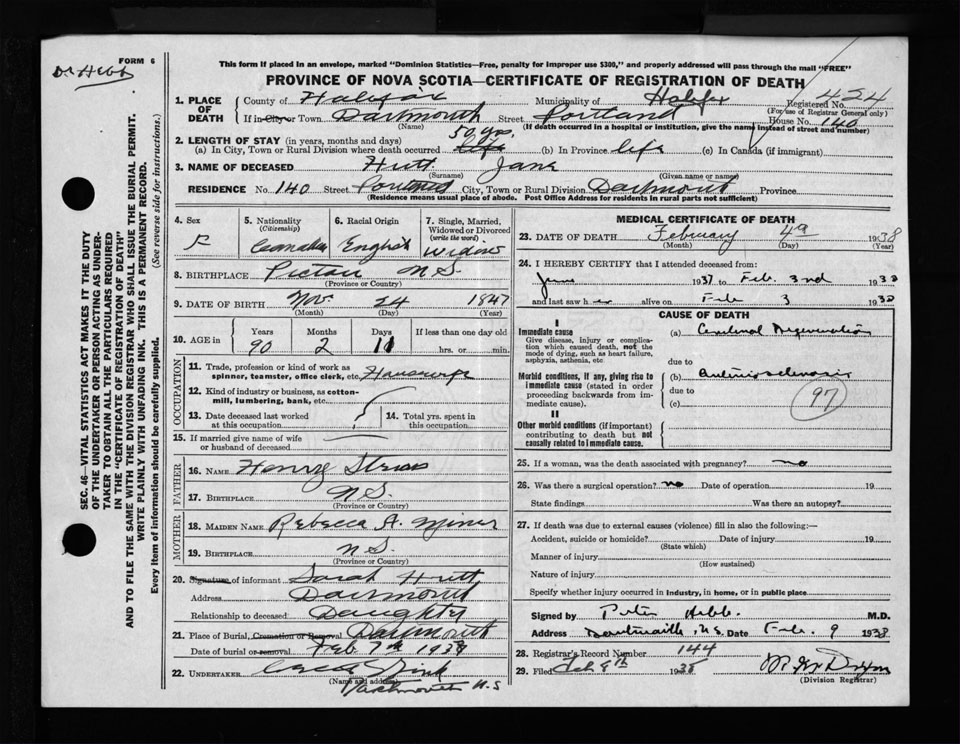 FORM 6
Dr Hebb
This form if placed in an envelope, marked "Dominion Statistics—Free, penalty for improper use $300," and properly addressed will pass through the mail "FREE"
PROVINCE OF NOVA SCOTIA—CERTIFICATE OF REGISTRATION OF DEATH
SEC. 46—VITAL STATISTICS ACT MAKES IT THE DUTY
OF THE UNDERTAKER OR PERSON ACTING AS UNDER-
TAKER TO OBTAIN ALL THE PARTICULARS REQUIRED
IN THE "CERTIFICATE OF REGISTRATION OF DEATH"
AND TO FILE THE SAME WITH THE DIVISION REGISTRAR WHO SHALL ISSUE THE BURIAL PERMIT.
WRITE PLAINLY WITH UNFADING INK. THIS IS A PERMANENT RECORD.
Every item of information should be carefully supplied. (See reverse side for instructions.)
1. PLACE OF DEATH County of Halifax Municipality of Halifax Registered No. 424
(For use of Registrar General only)
If in City or Town Dartmouth Street Portland House No. 140
(Name) (If death occurred in a hospital or institution, give the name instead of street and number)
2. LENGTH OF STAY (in years, months and days) 50 yrs.
(a) In City, Town or Rural Division where death occurred life (b) In Province life (c) In Canada (if immigrant)
3. NAME OF DECEASED Hutt Jane
(Surname) (Given name or names)
RESIDENCE No. 140 Street Portland City, Town or Rural Division Dartmouth Province
(Residence means usual place of abode. Post Office Address for residents in rural parts not sufficient)
4. Sex F
5. Nationality (Citizenship) Canadian
6. Racial Origin English
7. Single, Married, Widowed or Divorced (write the word) Widow
8. BIRTHPLACE Pictou N.S.
(Province or Country)
9. DATE OF BIRTH Nov. 24 1847
(Month) (Day) (Year)
10. AGE in Years 90 Months 2 Days 11 If less than one day old hrs. or min.
OCCUPATION
11. Trade, profession or kind of work as spinner, teamster, office clerk, etc. Housewife
12. Kind of industry or business, as cotton-mill, lumbering, bank, etc.
13. Date deceased last worked at this occupation
14. Total yrs. spent in this occupation
15. If married give name of wife or husband of deceased
FATHER
16. NAME Henry
17. BIRTHPLACE N.S.
(Province or Country)
MOTHER
18. MAIDEN NAME Rebecca A. Miner
19. BIRTHPLACE N.S.
(Province or Country)
20. Signature of informant Sarah Hutt
Address Dartmouth
Relationship to deceased Daughter
21. Place of Burial, Cremation or Removal Dartmouth
Date of burial or removal Feb 7th 1938
22. UNDERTAKER
(Name and address) Dartmouth N.S
MEDICAL CERTIFICATE OF DEATH
23. DATE OF DEATH February 4th 1938
(Month) (Day) (Year)
24. I HEREBY CERTIFY that I attended deceased from:
June 1937 to Feb. 3rd 1938
and last saw her alive on Feb 3 1938
CAUSE OF DEATH
I
Immediate cause
Give disease, injury or complication which caused death, not the mode of dying, such as heart failure, asphyxia, asthenia, etc
(a) Cerebral Degeneration
due to
Morbid conditions, if any, giving rise to immediate cause (stated in order proceeding backwards from immediate cause).
(b) Arteriosclerosis
due to
(c)
97
II
Other morbid conditions (if important) contributing to death but not causally related to immediate cause.
25. If a woman, was the death associated with pregnancy? no
26. Was there a surgical operation? no Date of operation 19
State findings Was there an autopsy?
27. If death was due to external causes (violence) fill in also the following:—
Accident, suicide or homicide? Date of injury 19
(State which)
Manner of injury
(How sustained)
Nature of injury
Specify whether injury occurred in industry, in home, or in public place
Signed by Peter Hebb M.D.
Address Dartmouth, N.S. Date Feb. 9 1938
28. Registrar's Record Number 144
29. Filed Feb 9th 1938
(Division Registrar)